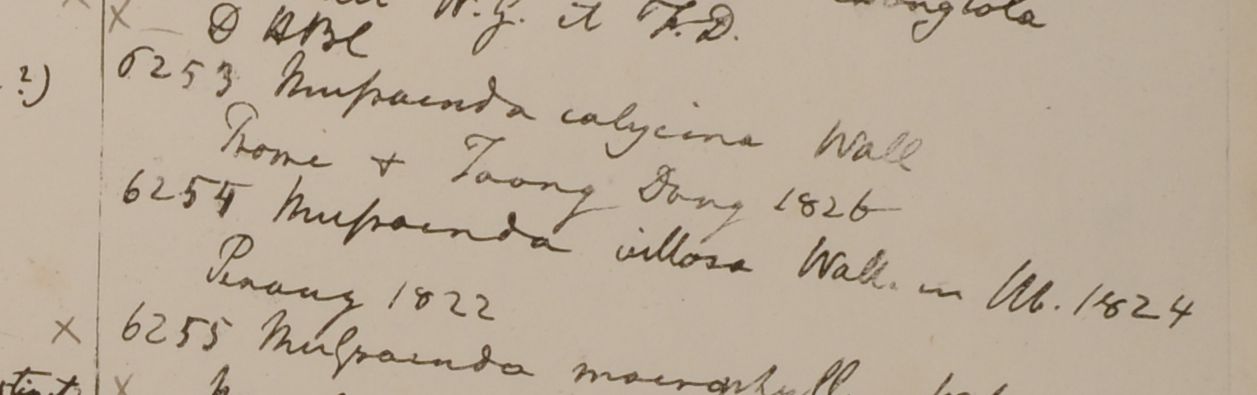 W.G. et F.D.
D HBC
6253 Mussaenda calycina Wall
Prome + Taong Dong 1826
6254 Mussaenda villosa Wall. in 1824
Penang 1822
6255 Mussaenda